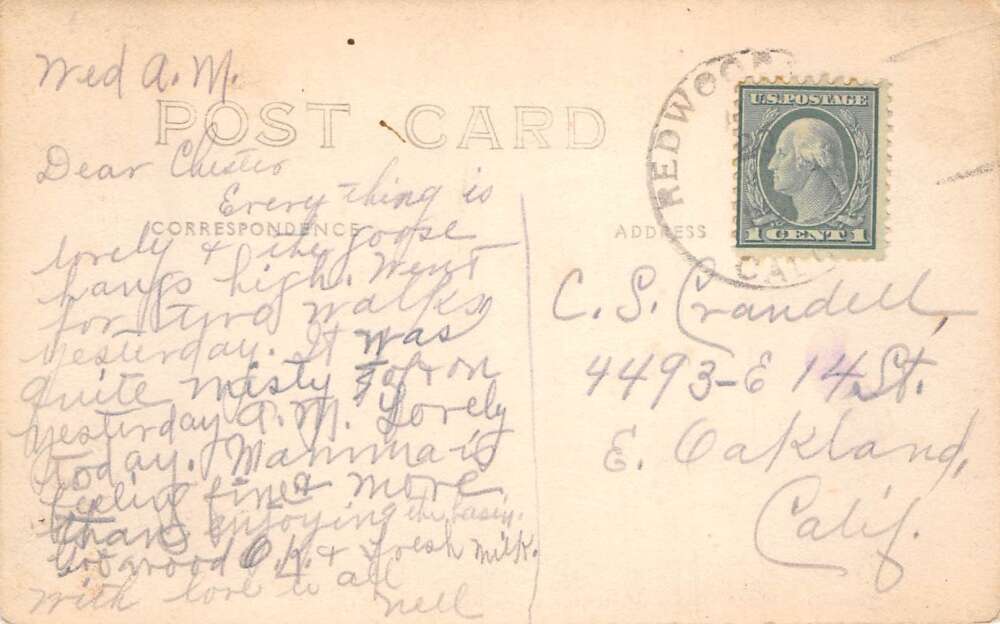 Wed A.M.
POST CARD
Dear Chester
Every thing is
CORRESPONDENCE
lovely & the goose
hangs high. Went
for two walks
yesterday. It was
quite misty
yesterday A.M. Lovely
today. Mamma is
feeling fine & more
than enjoying the
O.K. & fresh milk.
with love to all
Nell
REDWOOD
CALIF
U.S. POSTAGE
1 CENT 1
ADDRESS
C. S. Crandell,
4493-E 14 St.
E. Oakland,
Calif.